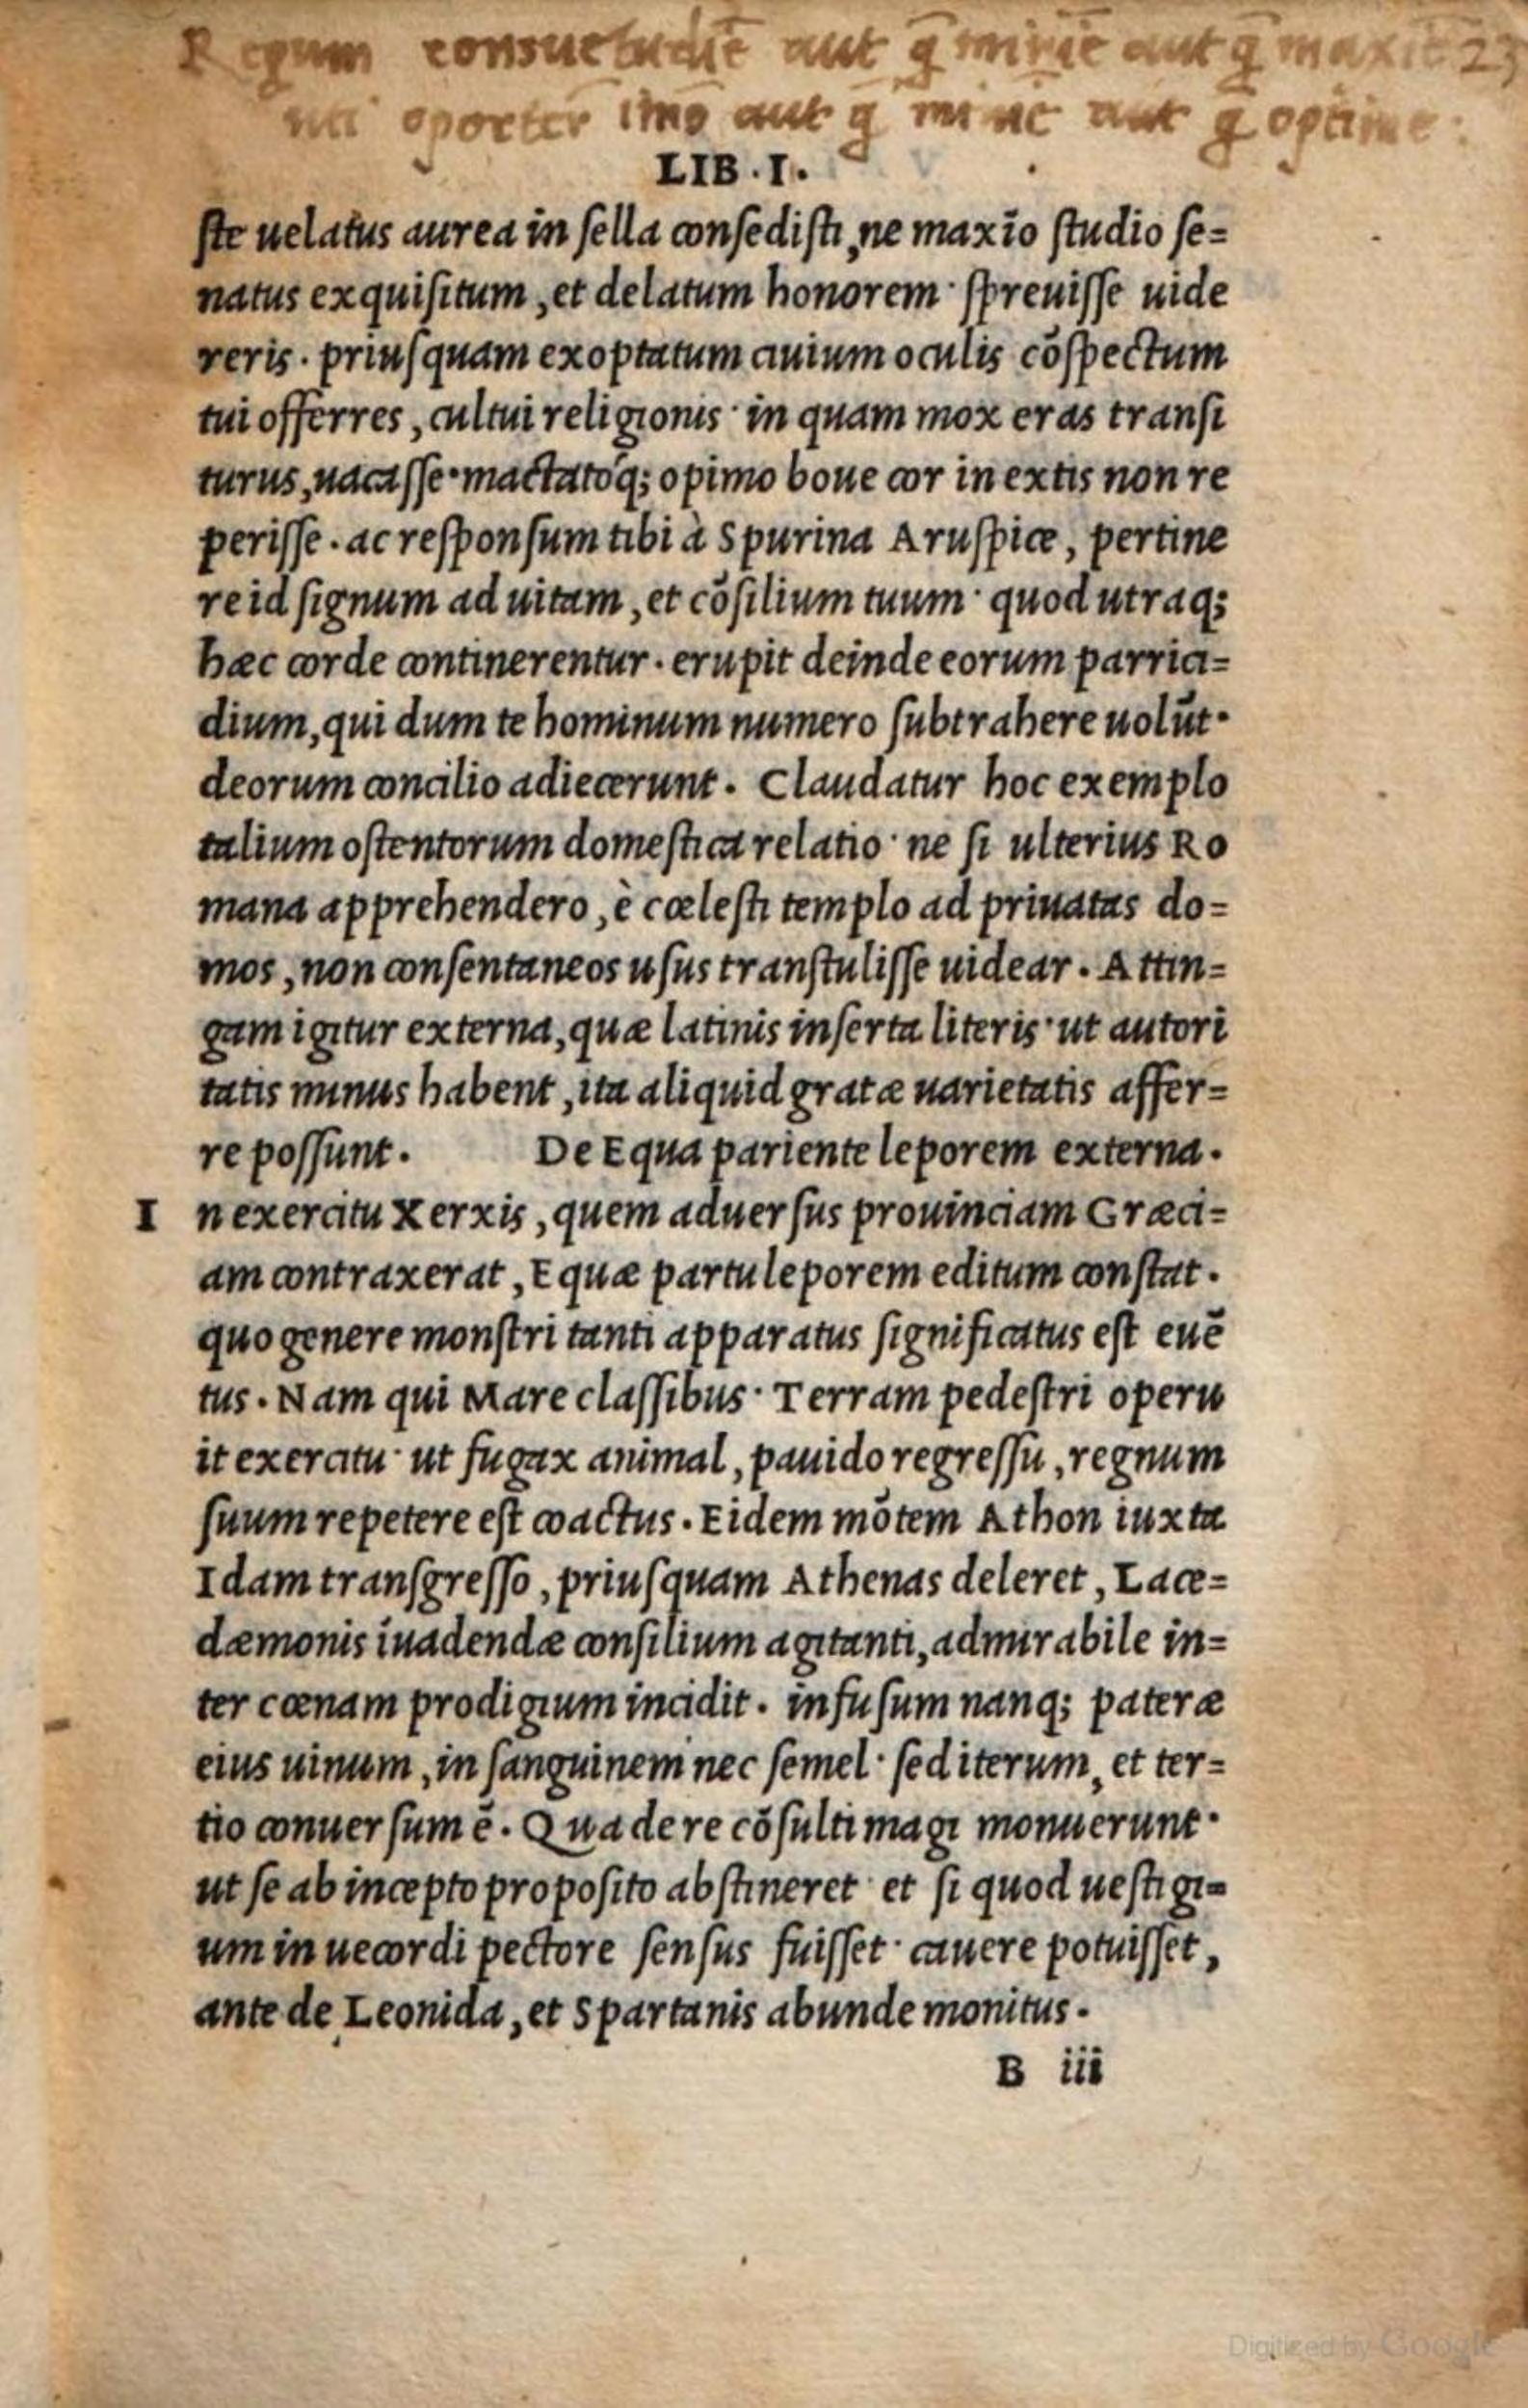 Regum consuetudiē aut q̄ minīe aut q̄ maxiē 23
uti oportet īmo aut q̄ minīe aut q̄ optime.
LIB. I.
ſte uelatus aurea in ſella conſediſti, ne maxīo ſtudio ſe=
natus exquiſitum, et delatum honorem· ſpreuiſſe uide
reris. priuſquam exoptatum ciuium oculis cōſpectum
tui offerres, cultui religionis· in quam mox eras tranſi
turus, uacaſſe· mactatóq; opimo boue cor in extis non re
periſſe. ac reſponſum tibi à Spurina Aruſpice, pertine
re id ſignum ad uitam, et cōſilium tuum· quod utraq;
hæc corde continerentur. erupit deinde eorum parrici=
dium, qui dum te hominum numero ſubtrahere uolūt·
deorum concilio adiecerunt. Claudatur hoc exemplo
talium oſtentorum domeſtica relatio· ne ſi ulterius Ro
mana apprehendero, è cœleſti templo ad priuatas do=
mos, non conſentaneos uſus tranſtuliſſe uidear. Attin=
gam igitur externa, quæ latinis inſerta literis· ut autori
tatis minus habent, ita aliquid gratæ uarietatis affer=
re poſſunt. De Equa pariente leporem externa.
I n exercitu Xerxis, quem aduerſus prouinciam Græci=
am contraxerat, Equæ partu leporem editum conſtat.
quo genere monſtri tanti apparatus ſignificatus eſt euē
tus. Nam qui Mare claſſibus· Terram pedeſtri operu
it exercitu· ut fugax animal, pauido regreſſu, regnum
ſuum repetere eſt coactus. Eidem mōtem Athon iuxta
Idam tranſgreſſo, priuſquam Athenas deleret, Lace=
dæmonis īuadendæ conſilium agitanti, admirabile in=
ter cœnam prodigium incidit. infuſum nanq; pateræ
eius uinum, in ſanguinem nec ſemel· ſed iterum, et ter=
tio conuerſum ē. Qua de re cōſulti magi monuerunt·
ut ſe ab incepto propoſito abſtineret· et ſi quod ueſtigi=
um in uecordi pectore ſenſus fuiſſet· cauere potuiſſet,
ante de Leonida, et Spartanis abunde monitus.
B iii
Digitized by Google